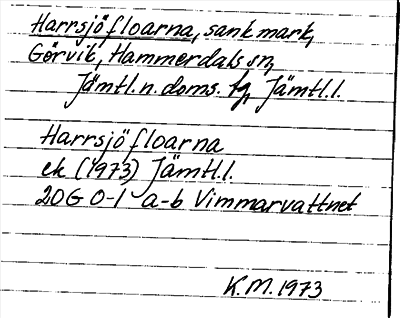 Harrsjöfloarna, sank mark,
Görvik, Hammerdals sn,
Jämtl.n. doms. tg, Jämtl.l.
Harrsjöfloarna
ek (1973) Jämtl.l.
20G 0-1 a-b Vimmarvattnet
K.M. 1973